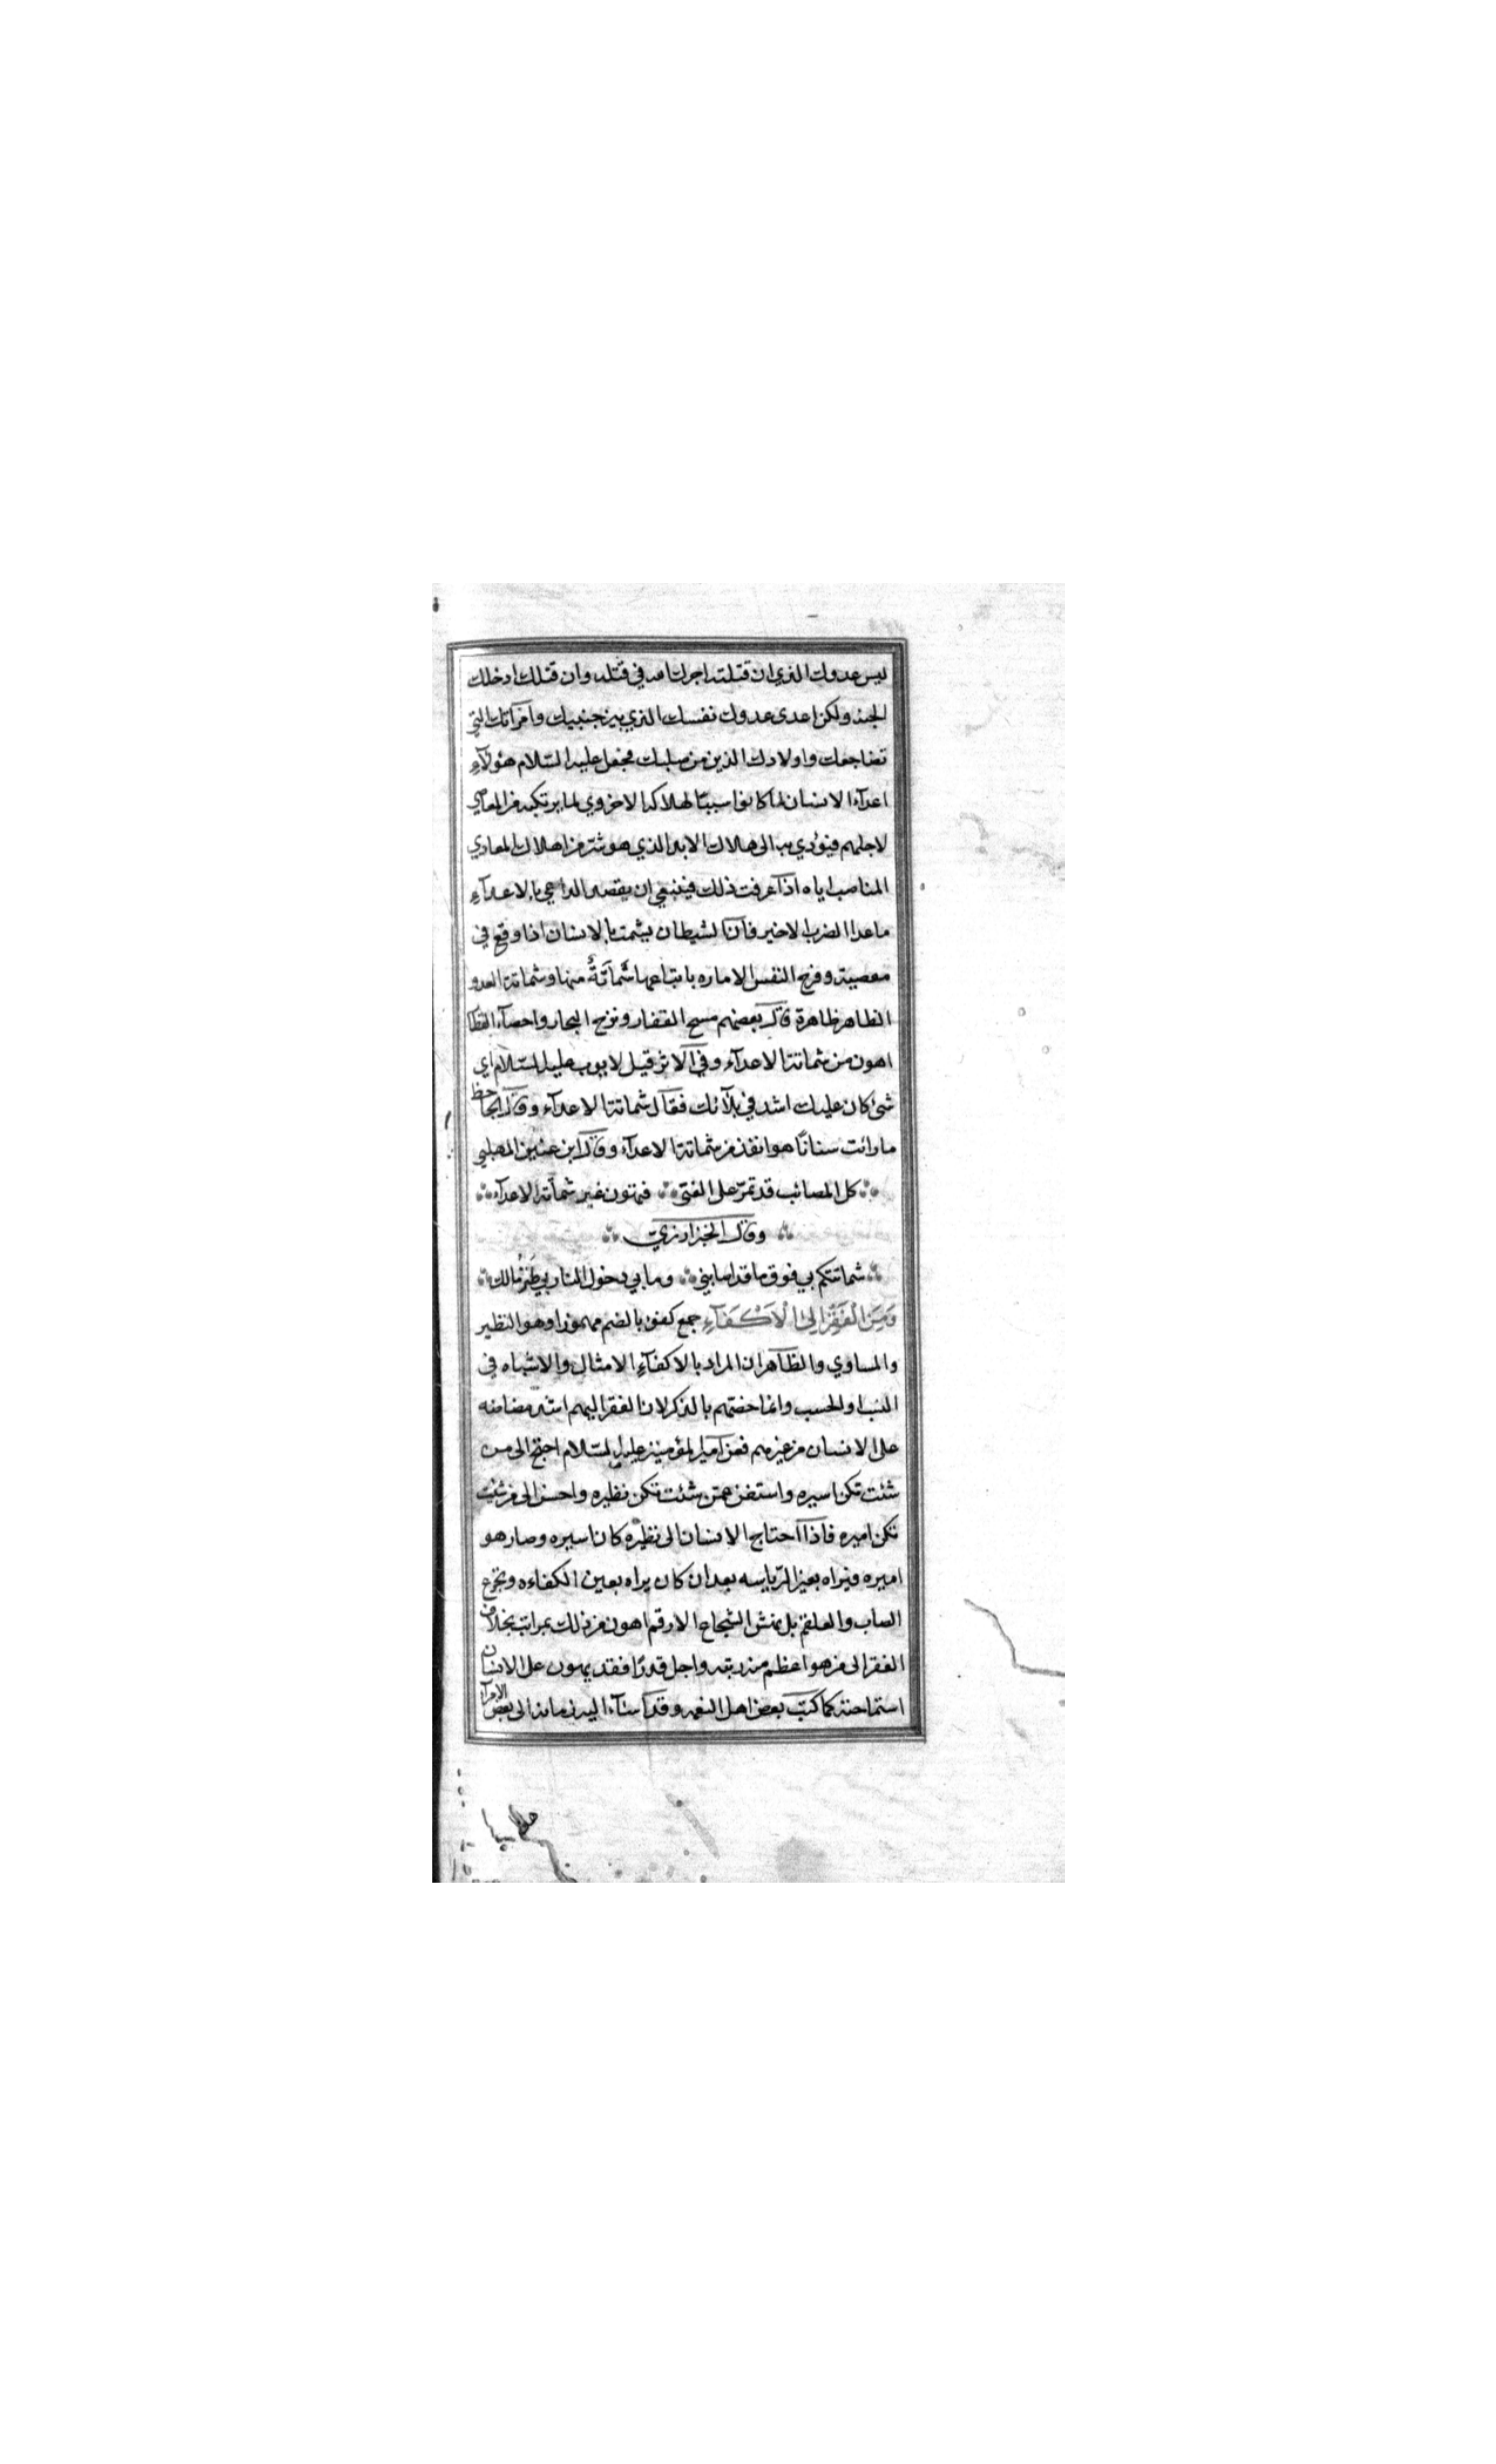 ليس عدوك الذي ان قتلته اجرك الله في قتله وان قتلك ادخلك
الجنة ولكن اعدى عدوك نفسك الذي بين جنبيك وامرأتك التي
تضاجعك واولادك الذين من صلبك فجعل عليه السّلام هؤلآءِ
اعدآء الانسان لما كانوا سببًا لهلاكه الاخروي لما يرتكبه من المعاصي
لاجلهم فيؤدي به الى هلاك الابد الذي هو شرّ من اهلاك المعادي
المناصب اياه اذا عرفت ذلك فينبغي ان يقصد الداعي بالاعدآءِ
ماعدا الضرب الاخير فان الشيطان يشمت بالانسان اذا وقع في
معصية وفرح النفس الاماره باتباعها شَماتَةٌ منها وشماتة العدو
الظاهر ظاهرة قال بعضهم مسح القفار ونزح البحار واحصآء القطا
اهون من شماتة الاعدآء وفي الاثر قيل لايوب عليه السّلام اي
شئ كان عليك اشد في بلآئك فقال شماتة الاعدآء وقال الجاحظ
ما رائت سنانًا هو انفذ من شماتة الاعدآء وقال ابن عنين المهلبي
كل المصائب قد تمرّ على الفتى فتهون غير شماتة الاعدآء
وقال الخبزارزيّ
شماتتكم بي فوق ما قد اصابني وما بي دخول النار بي طَنزُ مالك
وَمِنَ الْفَقْرِ اِلَى الْاَكْفَآءِ جمع كفؤ بالضم مهموزا وهو النظير
والمساوي والظاهر ان المراد بالاكفآءِ الامثال والاشباه في
النسب او الحسب وانما خصّهم بالذكر لان الفقر اليهم اشدّ مضاضه
على الانسان من غيرهم فعن امير المؤمنين عليه السّلام احتج الى من
شئت تكن اسيره واستغن عمّن شئت تكن نظيره واحسن الى من شئت
تكن اميره فاذا احتاج الانسان الى نظيره كان اسيره وصار هو
اميره فيراه بعين الرّياسه بعد ان كان يراه بعين الكفاءه وتجرع
الصاب والعلقم بل نهش الشجاع الارقم اهون من ذلك بمراتب بخلاف
الفقر الى من هو اعظم منه رتبه واجل قدرًا فقد يهون على الانسان
استماحته كما كتب بعض اهل النعمه وقد اسآء اليه زمانه الى بعض الامرآء